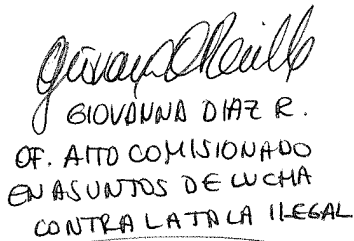 GIOVANNA DIAZ R.
OF. ALTO COMISIONADO
EN ASUNTOS DE LUCHA
CONTRA LA TALA ILEGAL